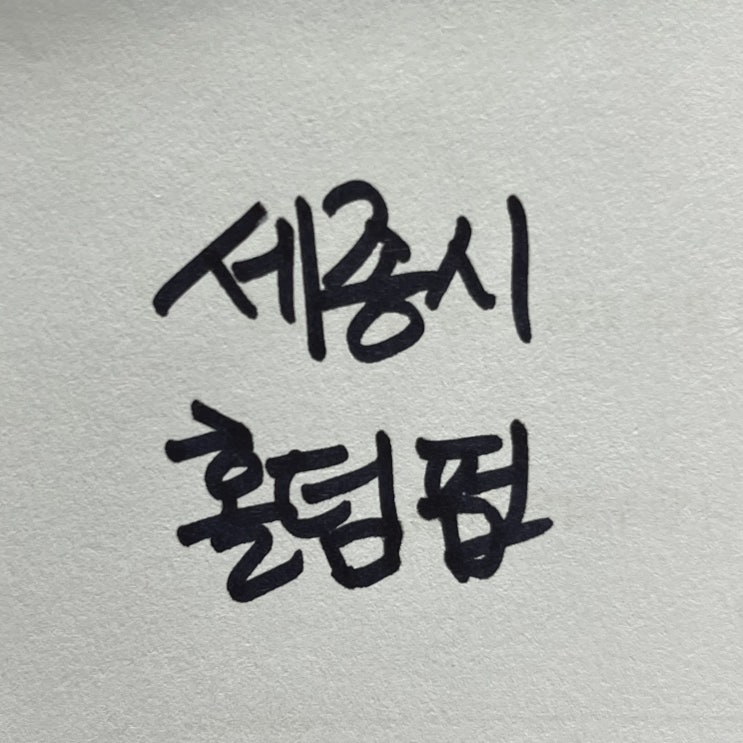 세종시
홀덤펍